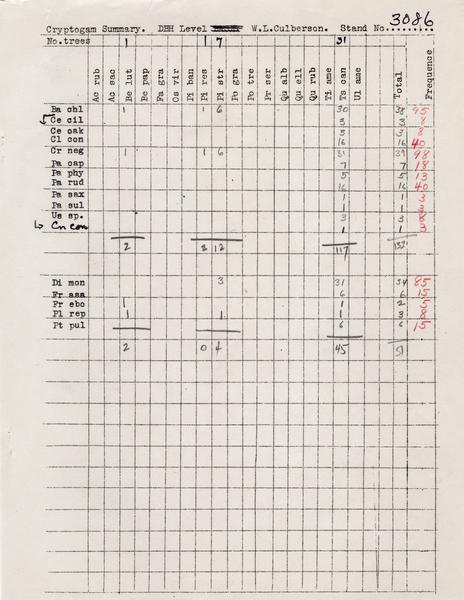 3086
Cryptogam Summary. DBH Level W.L.Culberson. Stand No.
No.trees 1 1 7 31
Ac rub Ac sac Be lut Be pap Fa gra Os vir Pi ban Pi res Pi str Po gra Po tre Pr ser Qu alb Qu ell Qu rub Ti ame Ts can Ul ame Total Frequence
Ba chl 1 1 6 30 38 95
Ce cil 3 3 8
Ce oak 3 3 8
Cl con 16 16 40
Cr neg 1 1 6 31 39 98
Pa cap 7 7 18
Pa phy 5 5 13
Pa rud 16 16 40
Pa sax 1 1 3
Pa sul 1 1 3
Us sp. 3 3 8
Cn con 1 1 3
2 2 12 117 133
Di mon 3 31 34 85
Fr asa 6 6 15
Fr ebo 1 1 2 5
Pl rep 1 1 1 3 8
Pt pul 6 6 15
2 0 4 45 51